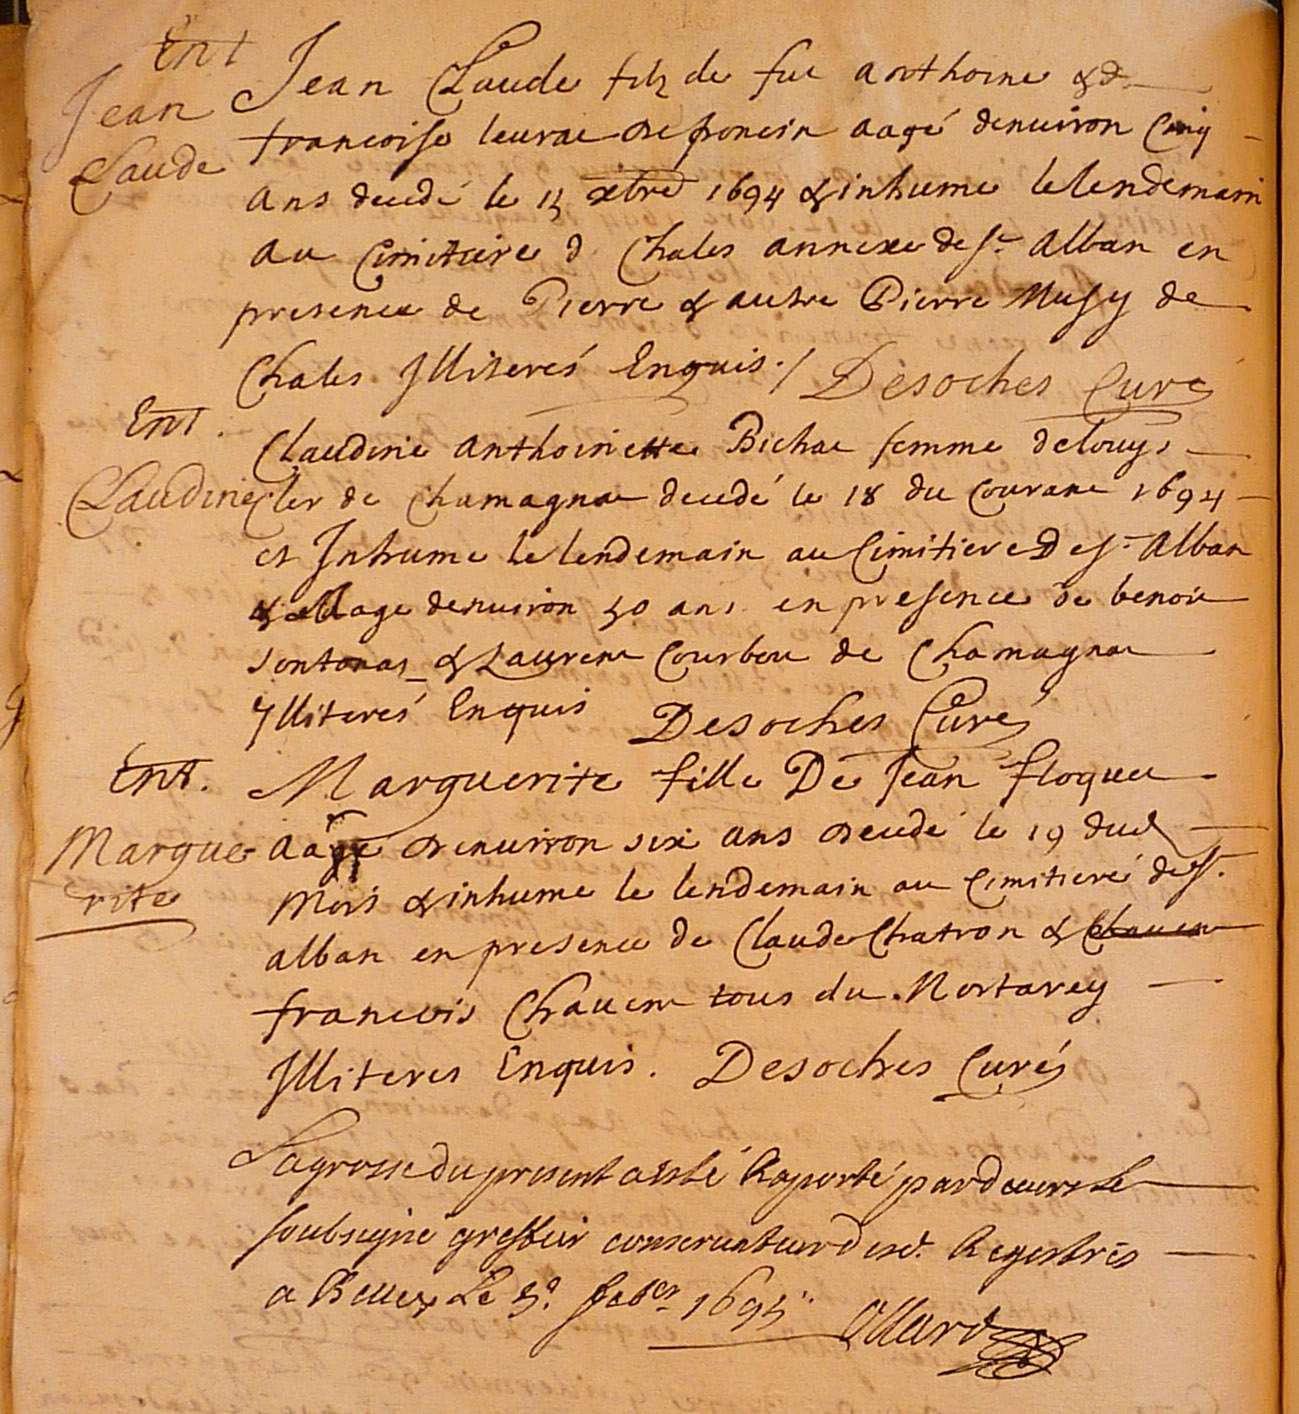 Ent
Jean
Claude
Jean Claude filz de fut anthoine & de
francoise leurat de poncin aagé denuiron Cinq
ans decedé le 15 xbre 1694 & inhume le lendemain
au Cimitiere d Chales annexe de St Alban en
presence de Pierre & autre Pierre Musy de
Chales Illiteres Enquis ./ Desoches Curé
Ent.
Claudine
Claudine anthoinette Bichat femme de louys
Cler de Chamagnat decedé le 18 du Courant 1694
et Inhume le lendemain au Cimitiere De St Alban
& age denuiron 50 ans en presence de benoit
& Laurent Courbou de Chamagnat
Illiteres Enquis Desoches Curé
Ent.
Margue-
rite
Marguerite fille De Jean floquet
aage denuiron six ans decedé le 19 dud
Mois & inhume le lendemain au Cimitieré de St.
alban en presence de Claude Chatron & Chauent
francois Chauent tous du Mortarey
Illiteres Enquis. Desoches Curé
La grosse du present a esté Raporté pardeuers Le
soubsigné greffier conseruateur desd. Regestres
a Belley Le 5e. feber 1695 Ollard